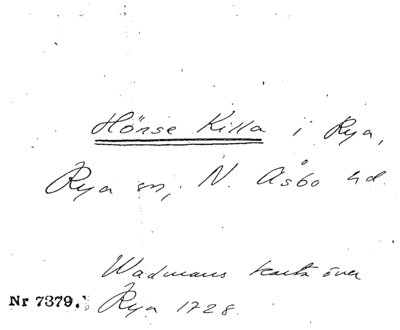 Hönse Killa i Rya,
Rya sn, N. Åsbo hd.
Wadmans karta över
Nr 7379. Rya 1728.